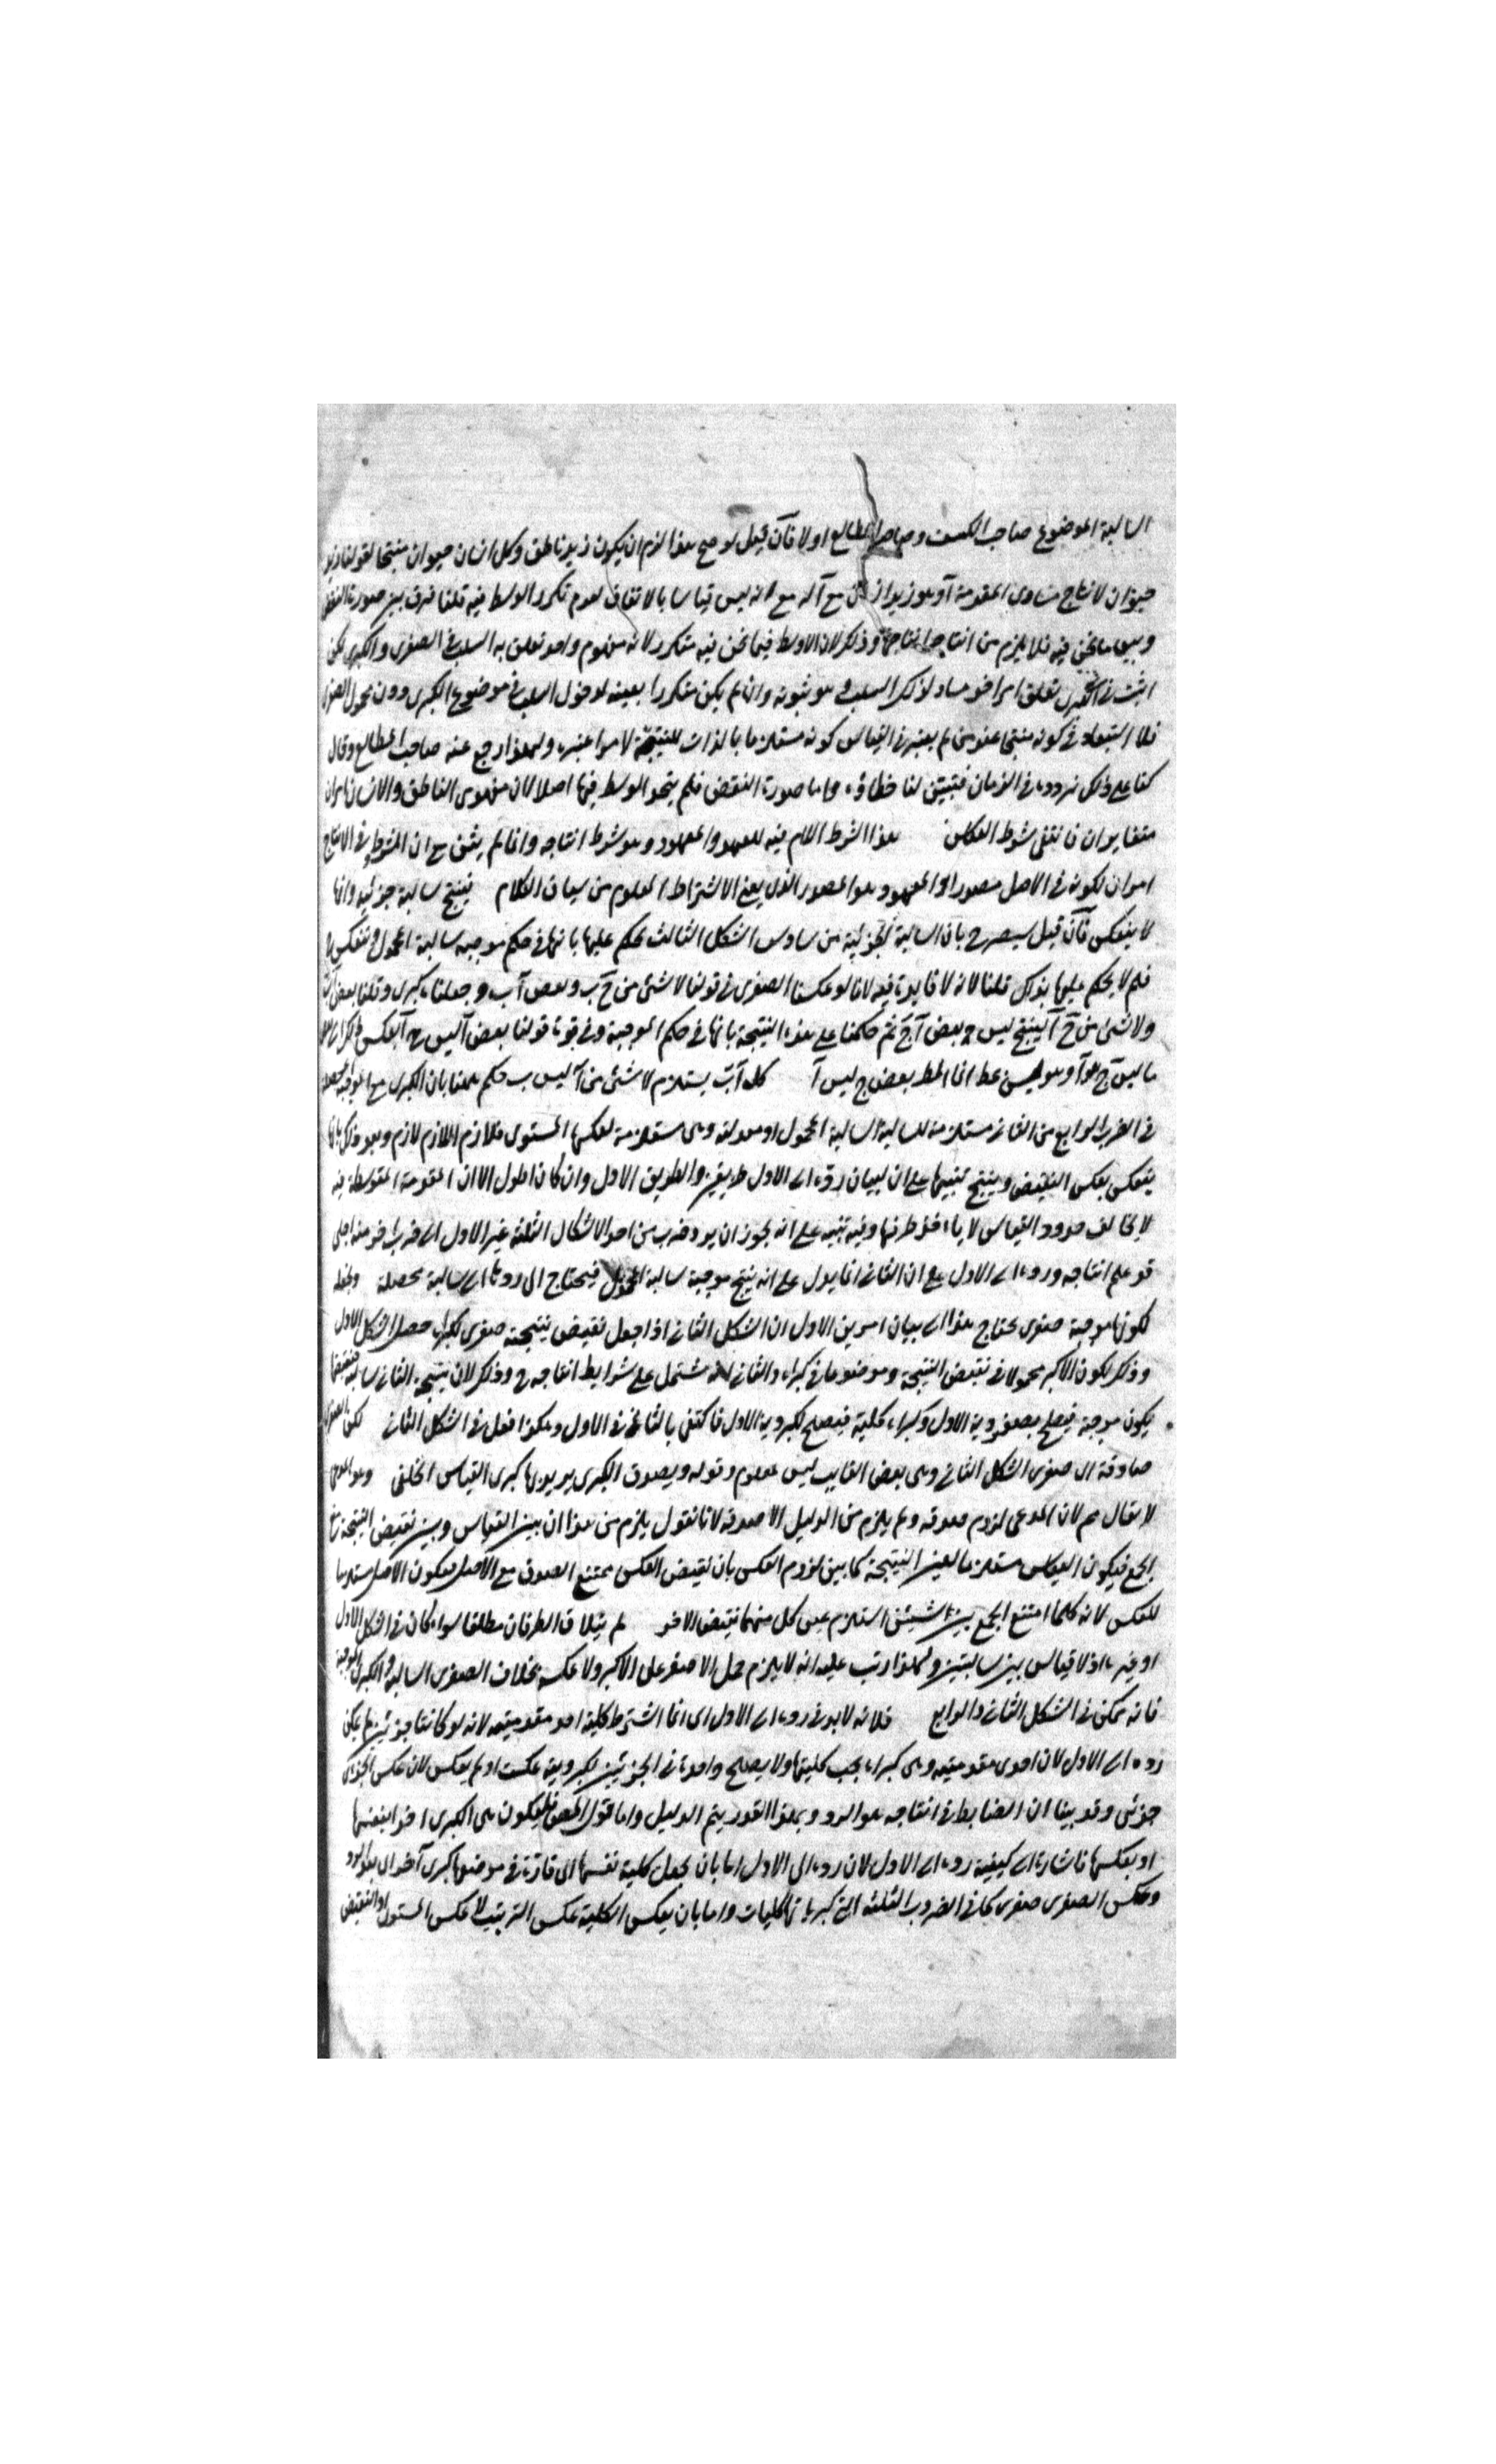 السالبة الموضوع صاحب الكشف وصاحب المطالع اولا فان قيل لو صح هذا لزم ان يكون زيد ناطق وكل انسان حيوان منتجا لقولنا زيد
حيوان لانتاج مساوى المقدمة مع انه ليس قياسا بالاتفاق لعدم تكرر الوسط فيه قلنا فرق بين صورة النقض
وبين ما نحن فيه فلا يلزم من انتاجها انتاجه وذلك لان الاوسط فيما نحن فيه متكرر لانه مفهوم واحد تعلق به السلب فى الصغرى والكبرى لكن
اثبت فى الكبرى تعلق امر اخر مساو لذلك السلب وهو ثبوته وان لم يكن متكررا بعينه لدخول السلب فى موضوع الكبرى دون محمول الصغرى
فلا استبعاد فى كونه منتجا عند من لم يعتبر فى القياس كونه مستلزما بالذات للنتيجة لا مرا عنده ولهذا رجع عنه صاحب المطالع وقال
كنا على ذلك نردده فى الزمان فتبين لنا خطاؤه واما صورة النقض فلم يتحد الوسط فيها اصلا لان مفهومى الناطق والانسان امران
متغايران فانتفى شرط العكس هذا الشرط اللام فيه للعهد والمعهود وهو شرط انتاجه وانما لم يثن مع ان الشرط فى الانتاج
امران لكونه فى الاصل مصدرا والمعهود هو المصدر الذى يعنى الاشتراط المعلوم من سياق الكلام ينتج سالبة جزئية وانها
لا ينعكس فان قيل سيصرح بان السالبة الجزئية من سادس الشكل الثالث يحكم عليها بانها فى حكم موجبة سالبة المحمول وتنعكس
فلم لا يحكم عليها بذلك قلنا لانه لا فايدة فيه لانا لو عكسنا الصغرى فى قولنا لا شئ من ج ب وبعض آ ب وجعلناه كبرى وقلنا بعض
ولا شئ من ج آ ينتج ليس بعض آ ج ثم حكمنا على هذه النتيجة بانها فى حكم الموجبة وفى قوة قولنا بعض آ ليس ج انعكس
ما ليس ج هو آ وهو ليس عط انما المط بعض ج ليس آ كل آ ب يستلزم لا شئ من آ ليس ب حكم ههنا بان الكبرى مع الموجبة المحصلة
فى الضرب الرابع من الثانى مستلزمة للسالبة السالبة المحمول او معدولته وهى مستلزمة لعكسها المستوى فلازم اللازم لازم وبعد ذلك
ينعكس بعكس النقيض وينتج تنبيها على ان لبيان رده الى الاول طريقين والطريق الاول وان كان اطول الا ان المقدمة المتوسطة فيه
لا يخالف حدود القياس لا ياء فى طرفها وفيه تنبيه على انه يجوز ان يرد ضرب من احد الاشكال الثلثة غير الاول الى ضرب اخر منه
قد علم انتاجه ورده الى الاول مع ان الثانى انما يدل على انه ينتج موجبة سالبة المحمول فيحتاج الى ردها الى سالبة محصلة
لكونها موجبة صغرى يحتاج هذا الى بيان امرين الاول ان الشكل الثانى اذا جعل نقيض نتيجته صغرى لكبراه حصل الشكل الاول
وذلك لكون الاكبر محمولا فى نقيض النتيجة وموضوعا فى كبراه والثانى انه مشتمل على شرايط انتاجه وذلك لان نتيجة الثانى سالبة فنقيضها
يكون موجبة فيصلح بصغروية الاول وكبراه كلية فيصلح لكبروية الاول فاكتفى بالثانى فى الاول وهكذا فعل فى الشكل الثانى لكن الصغرى
صادقة اى صغرى الشكل الثانى وهى بعض الغايب ليس بمعلوم وقوله ويصدق الكبرى يريد بها كبرى القياس الخلفى وهو المدعى
لا يقال هم لان المدعى لزوم صدقه ولم يلزم من الدليل الا صدقه لانا نقول يلزم من هذا ان بين القياس وبين نقيض النتيجة
الجمع فيكون القياس مستلزما لعين النتيجة كما بين لزوم العكس بان نقيض العكس ممتنع الصدق مع الاصل فيكون الاصل مستلزما
للعكس لانه كلما امتنع الجمع بين الشيئين استلزم عين كل منهما نقيض الاخر لم يتلاق الطرفان مطلقا سواء كان فى الشكل الاول
او غيره اذ لا قياس بين سالبتين ولهذا رتب عليه انه لا يلزم حمل الاصغر على الاكبر ولا عكسه بخلاف الصغرى السالبة والكبرى الموجبة
فانه ممكن فى الشكل الثانى والرابع فلانه لابد فى رده الى الاول اى انما اشترط كلية احد مقدمتيه لانه لو كانتا جزئيتين لم يمكن
رده الى الاول لان احدى مقدمتيه وهى كبراه يجب كليتها ولا يصلح واحدة فى الجزئيتين لكبرويته عكست او لم يعكس لان عكس الجزئى
جزئى وقد بينا ان الضابط فى انتاجه هو الرد وبهذا القدر يتم الدليل واما قول المص فليكون هى الكبرى اخرا بنفسها
او بعكسها فاشارة الى كيفية رده الى الاول لان رده الى الاول اما بان يجعل كلية نفسها الى قارة فى موضعها كبرى آخر الى
وعكس الصغرى صغرى كما فى الضروب الثلثة التى كبرياتها كليات واما بان يعكس الكلية عكس الترتيب لا عكس المستوى او النقيض